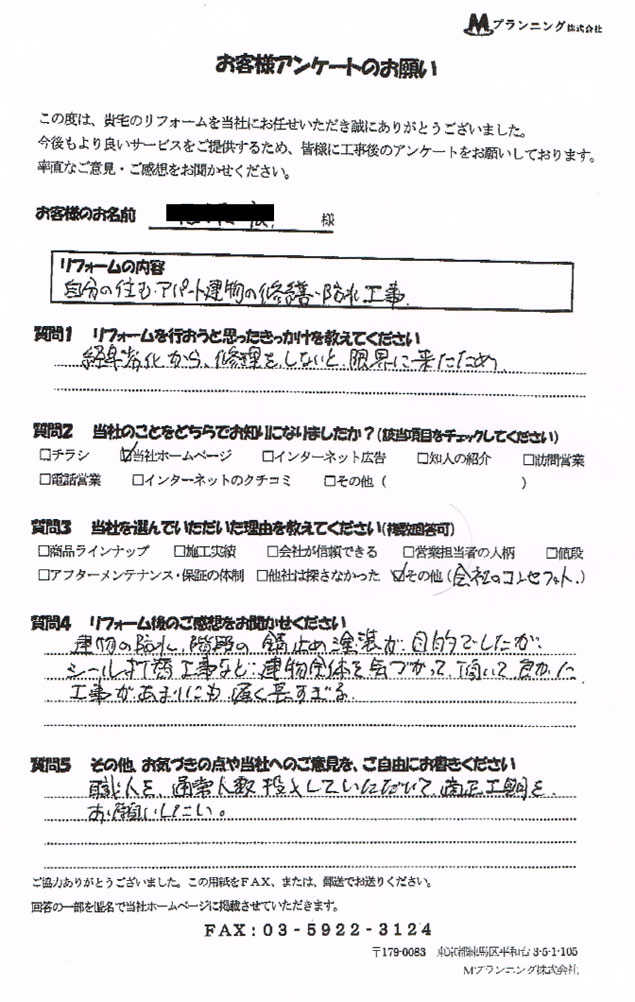 Mプランニング株式会社
お客様アンケートのお願い
この度は、貴宅のリフォームを当社にお任せいただき誠にありがとうございました。
今後もより良いサービスをご提供するため、皆様に工事後のアンケートをお願いしております。
率直なご意見・ご感想をお聞かせください。
お客様のお名前 様
リフォームの内容
自分の住む、アパート建物の修繕・防水工事
質問1 リフォームを行おうと思ったきっかけを教えてください
経年劣化から、修理をしないと限界に来たため
質問2 当社のことをどちらでお知りになりましたか？(該当項目をチェックしてください)
□チラシ ☑当社ホームページ □インターネット広告 □知人の紹介 □訪問営業
□電話営業 □インターネットのクチコミ □その他（ ）
質問3 当社を選んでいただいた理由を教えてください(複数回答可)
□商品ラインナップ □施工実績 □会社が信頼できる □営業担当者の人柄 □値段
□アフターメンテナンス・保証の体制 □他社は探さなかった ☑その他（会社のコンセプト。）
質問4 リフォーム後のご感想をお聞かせください
建物の防水、階段の錆止め塗装が、目的でしたが、
シール打替工事など、建物全体を気づかって、頂いて良かった
工事があまりにも遅く長すぎる
質問5 その他、お気づきの点や当社へのご意見を、ご自由にお書きください
職人を、通常人数投入していただいて適正工期を、
お願いしたい。
ご協力ありがとうございました。この用紙をFAX、または、郵送でお送りください。
回答の一部を匿名で当社ホームページに掲載させていただきます。
FAX:03-5922-3124
〒179-0083 東京都練馬区平和台3-5-1-105
Mプランニング株式会社